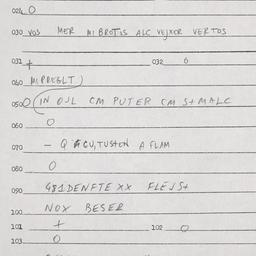 024 O
030 VOS MER MIBROTIS ALC VEJXOR VERTOS
031 + 032 6
040 MIPREGLT)
050 (IN OJL CM PUTER CM S+MALC
060 O
070 - Q A FLAM
080 O
090 4810ENFTE XX FLEJS+
100 NOX BESER
101 + 102 O
103 O